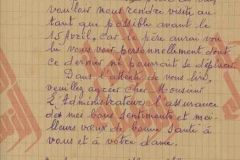 veuillez nous rendre visite au
tant que possible avant le
15 Avril, car le père aurai vou
lu vous voir personnellement dont
ce dernier ne pourrait se déplacer.
Dans l'attente de vous lire,
veuillez agréer Cher Monsieur
L'Administrateur, l'assurance
des mes bons sentiments et meil
leurs vœux de bonne santé à
vous et à votre dame.